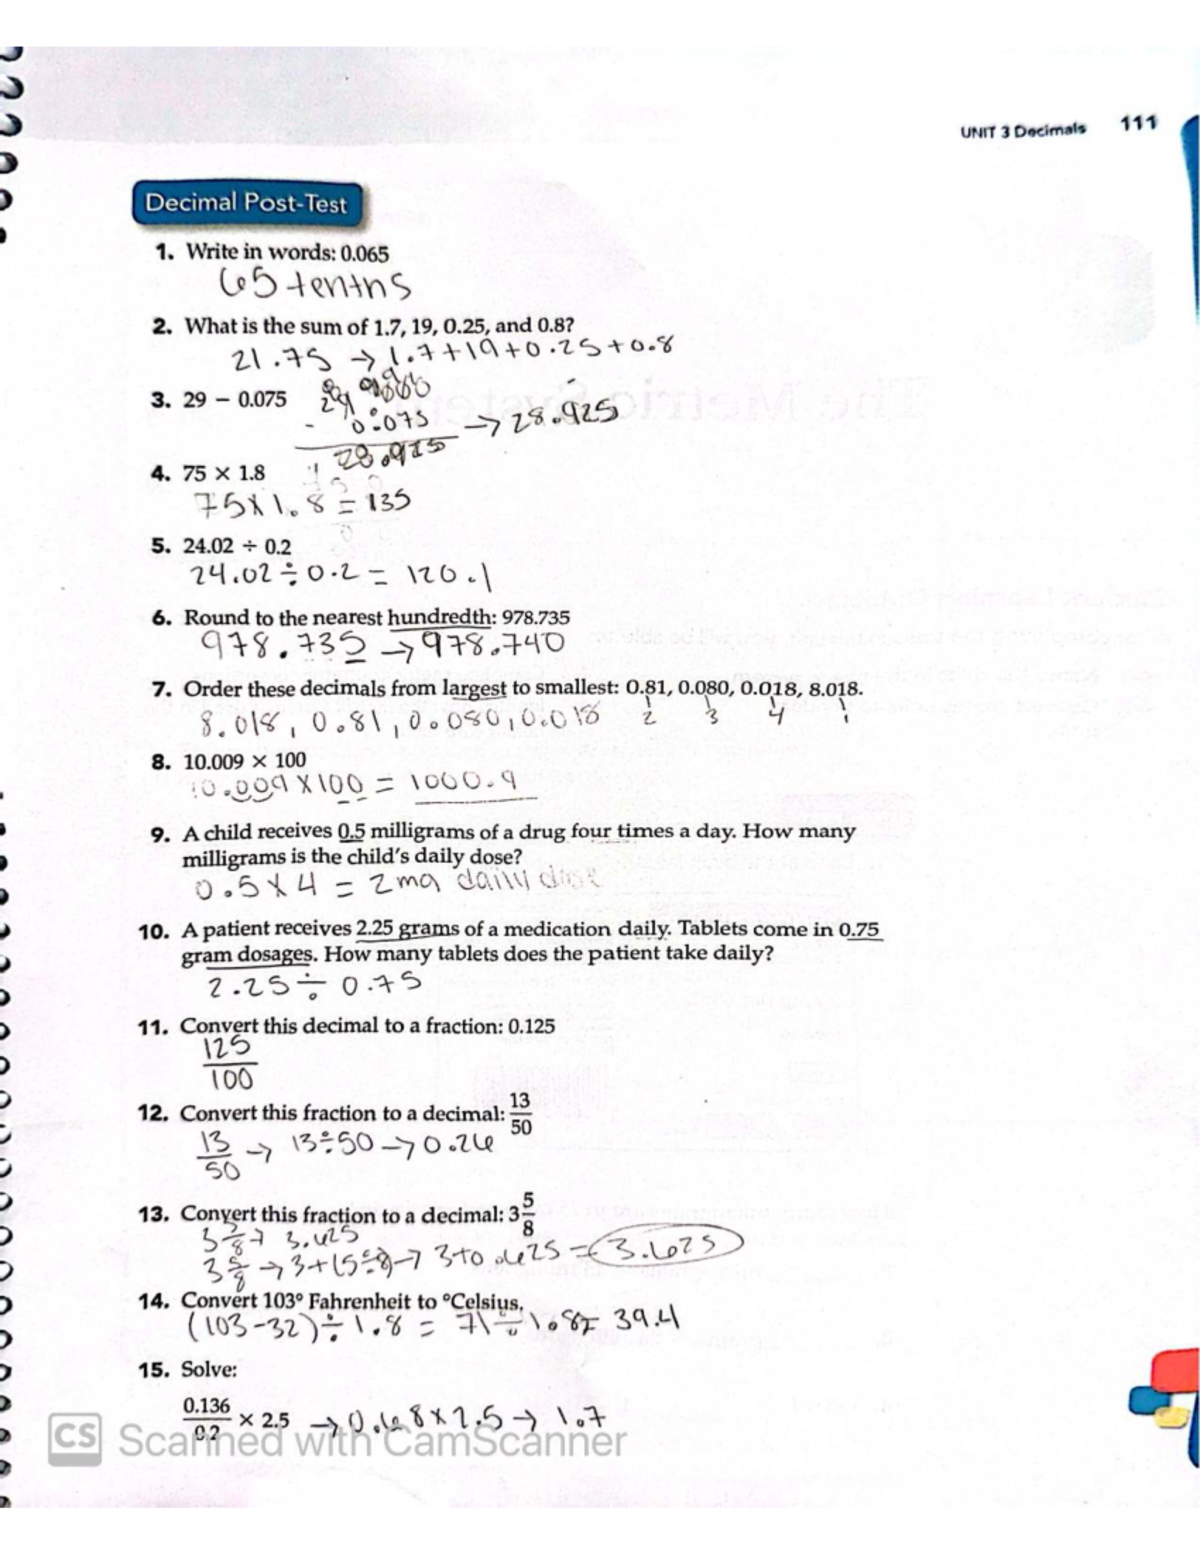 UNIT 3 Decimals 111
Decimal Post-Test
1. Write in words: 0.065
65 tenths
2. What is the sum of 1.7, 19, 0.25, and 0.8?
21.75 → 1.7+19+0.25+0.8
3. 29 − 0.075
- 0.075 → 28.925
28.925
4. 75 × 1.8
75×1.8 = 135
5. 24.02 ÷ 0.2
24.02 ÷ 0.2 = 120.1
6. Round to the nearest hundredth: 978.735
978.735 → 978.740
7. Order these decimals from largest to smallest: 0.81, 0.080, 0.018, 8.018.
8.018, 0.81, 0.080, 0.018 2 3 4 1
8. 10.009 × 100
10.009 × 100 = 1000.9
9. A child receives 0.5 milligrams of a drug four times a day. How many
milligrams is the child's daily dose?
0.5 × 4 = 2mg daily dose
10. A patient receives 2.25 grams of a medication daily. Tablets come in 0.75
gram dosages. How many tablets does the patient take daily?
2.25 ÷ 0.75
11. Convert this decimal to a fraction: 0.125
125
100
12. Convert this fraction to a decimal: 13/50
13/50 → 13÷50 → 0.26
13. Convert this fraction to a decimal: 3 5/8
3 5/8 → 3.625
3 5/8 → 3+(5÷8) → 3+0.625 = 3.625
14. Convert 103° Fahrenheit to °Celsius.
(103-32) ÷ 1.8 = 71 ÷ 1.8 = 39.4
15. Solve:
0.136/0.2 × 2.5 → 0.68 × 2.5 → 1.7
CS Scanned with CamScanner